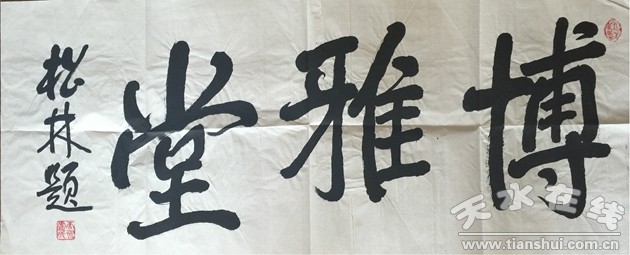 博雅堂
松林题
天水在线
www.tianshui.com.cn